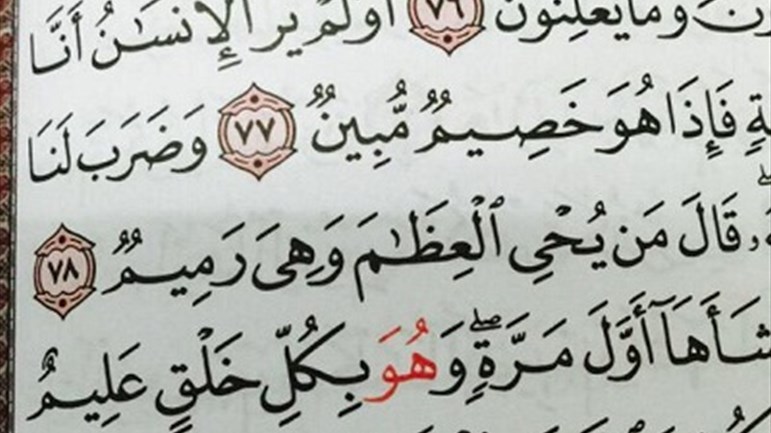 وَمَا يُعْلِنُونَ ٧٦ أَوَلَمْ يَرَ ٱلْإِنسَٰنُ أَنَّا
فَإِذَا هُوَ خَصِيمٌ مُّبِينٌ ٧٧ وَضَرَبَ لَنَا
قَالَ مَن يُحْىِ ٱلْعِظَٰمَ وَهِىَ رَمِيمٌ ٧٨
شَأَهَآ أَوَّلَ مَرَّةٍۖ وَهُوَ بِكُلِّ خَلْقٍ عَلِيمٌ